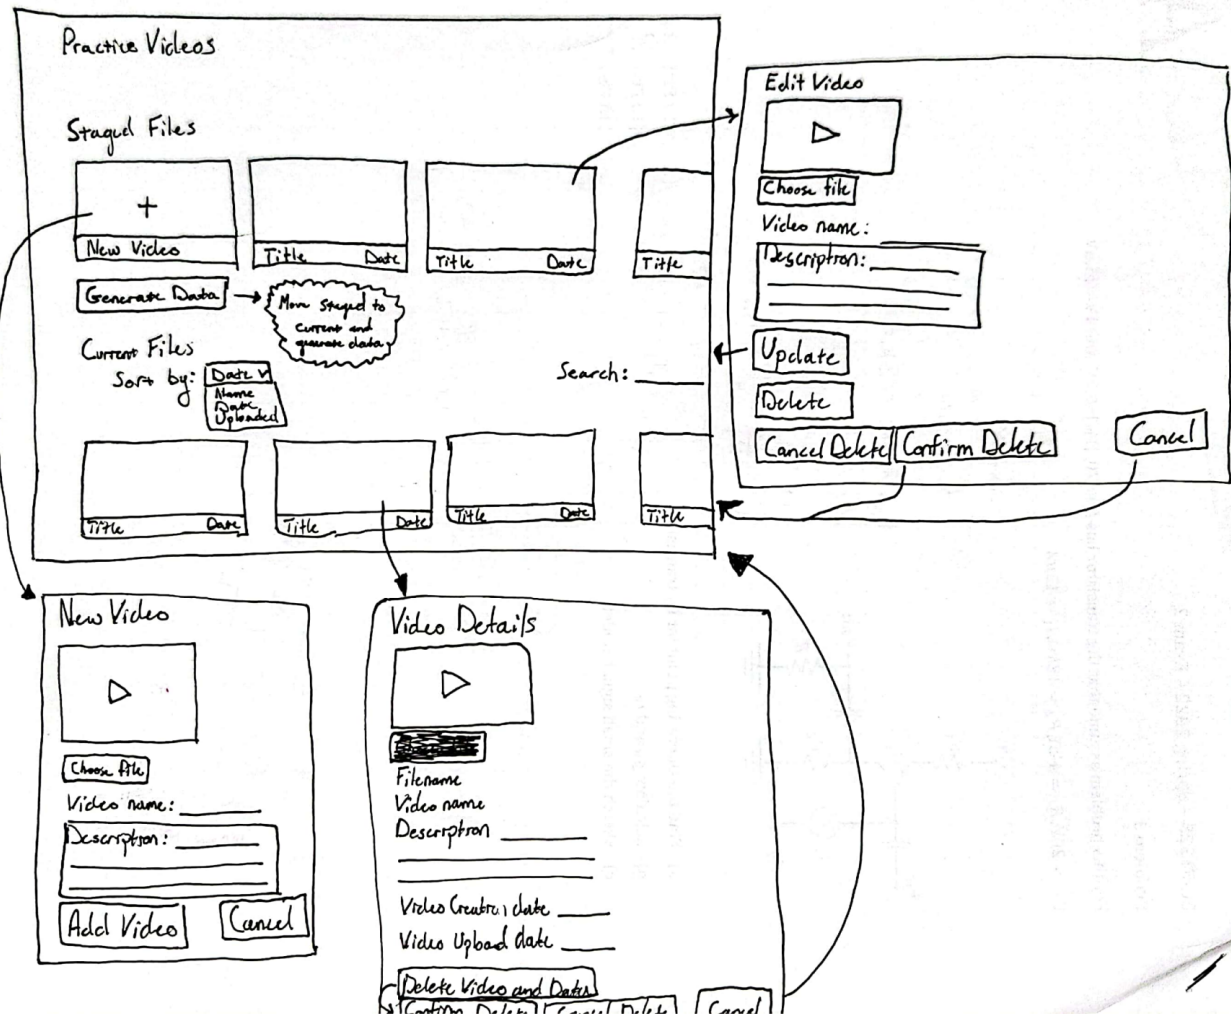 Practice Videos
Staged Files
+
New Video
Title Date
Title Date
Title
Generate Data
Move staged to
current and
generate data
Current Files
Sort by: Date
Name
Date
Uploaded
Search:
Title Date
Title Date
Title Date
Title
Edit Video
Choose file
Video name:
Description:
Update
Delete
Cancel Delete Confirm Delete
Cancel
New Video
Choose file
Video name:
Description:
Add Video Cancel
Video Details
Filename
Video name
Description
Video Creation date
Video Upload date
Delete Video and Data
Confirm Delete Cancel Delete Cancel